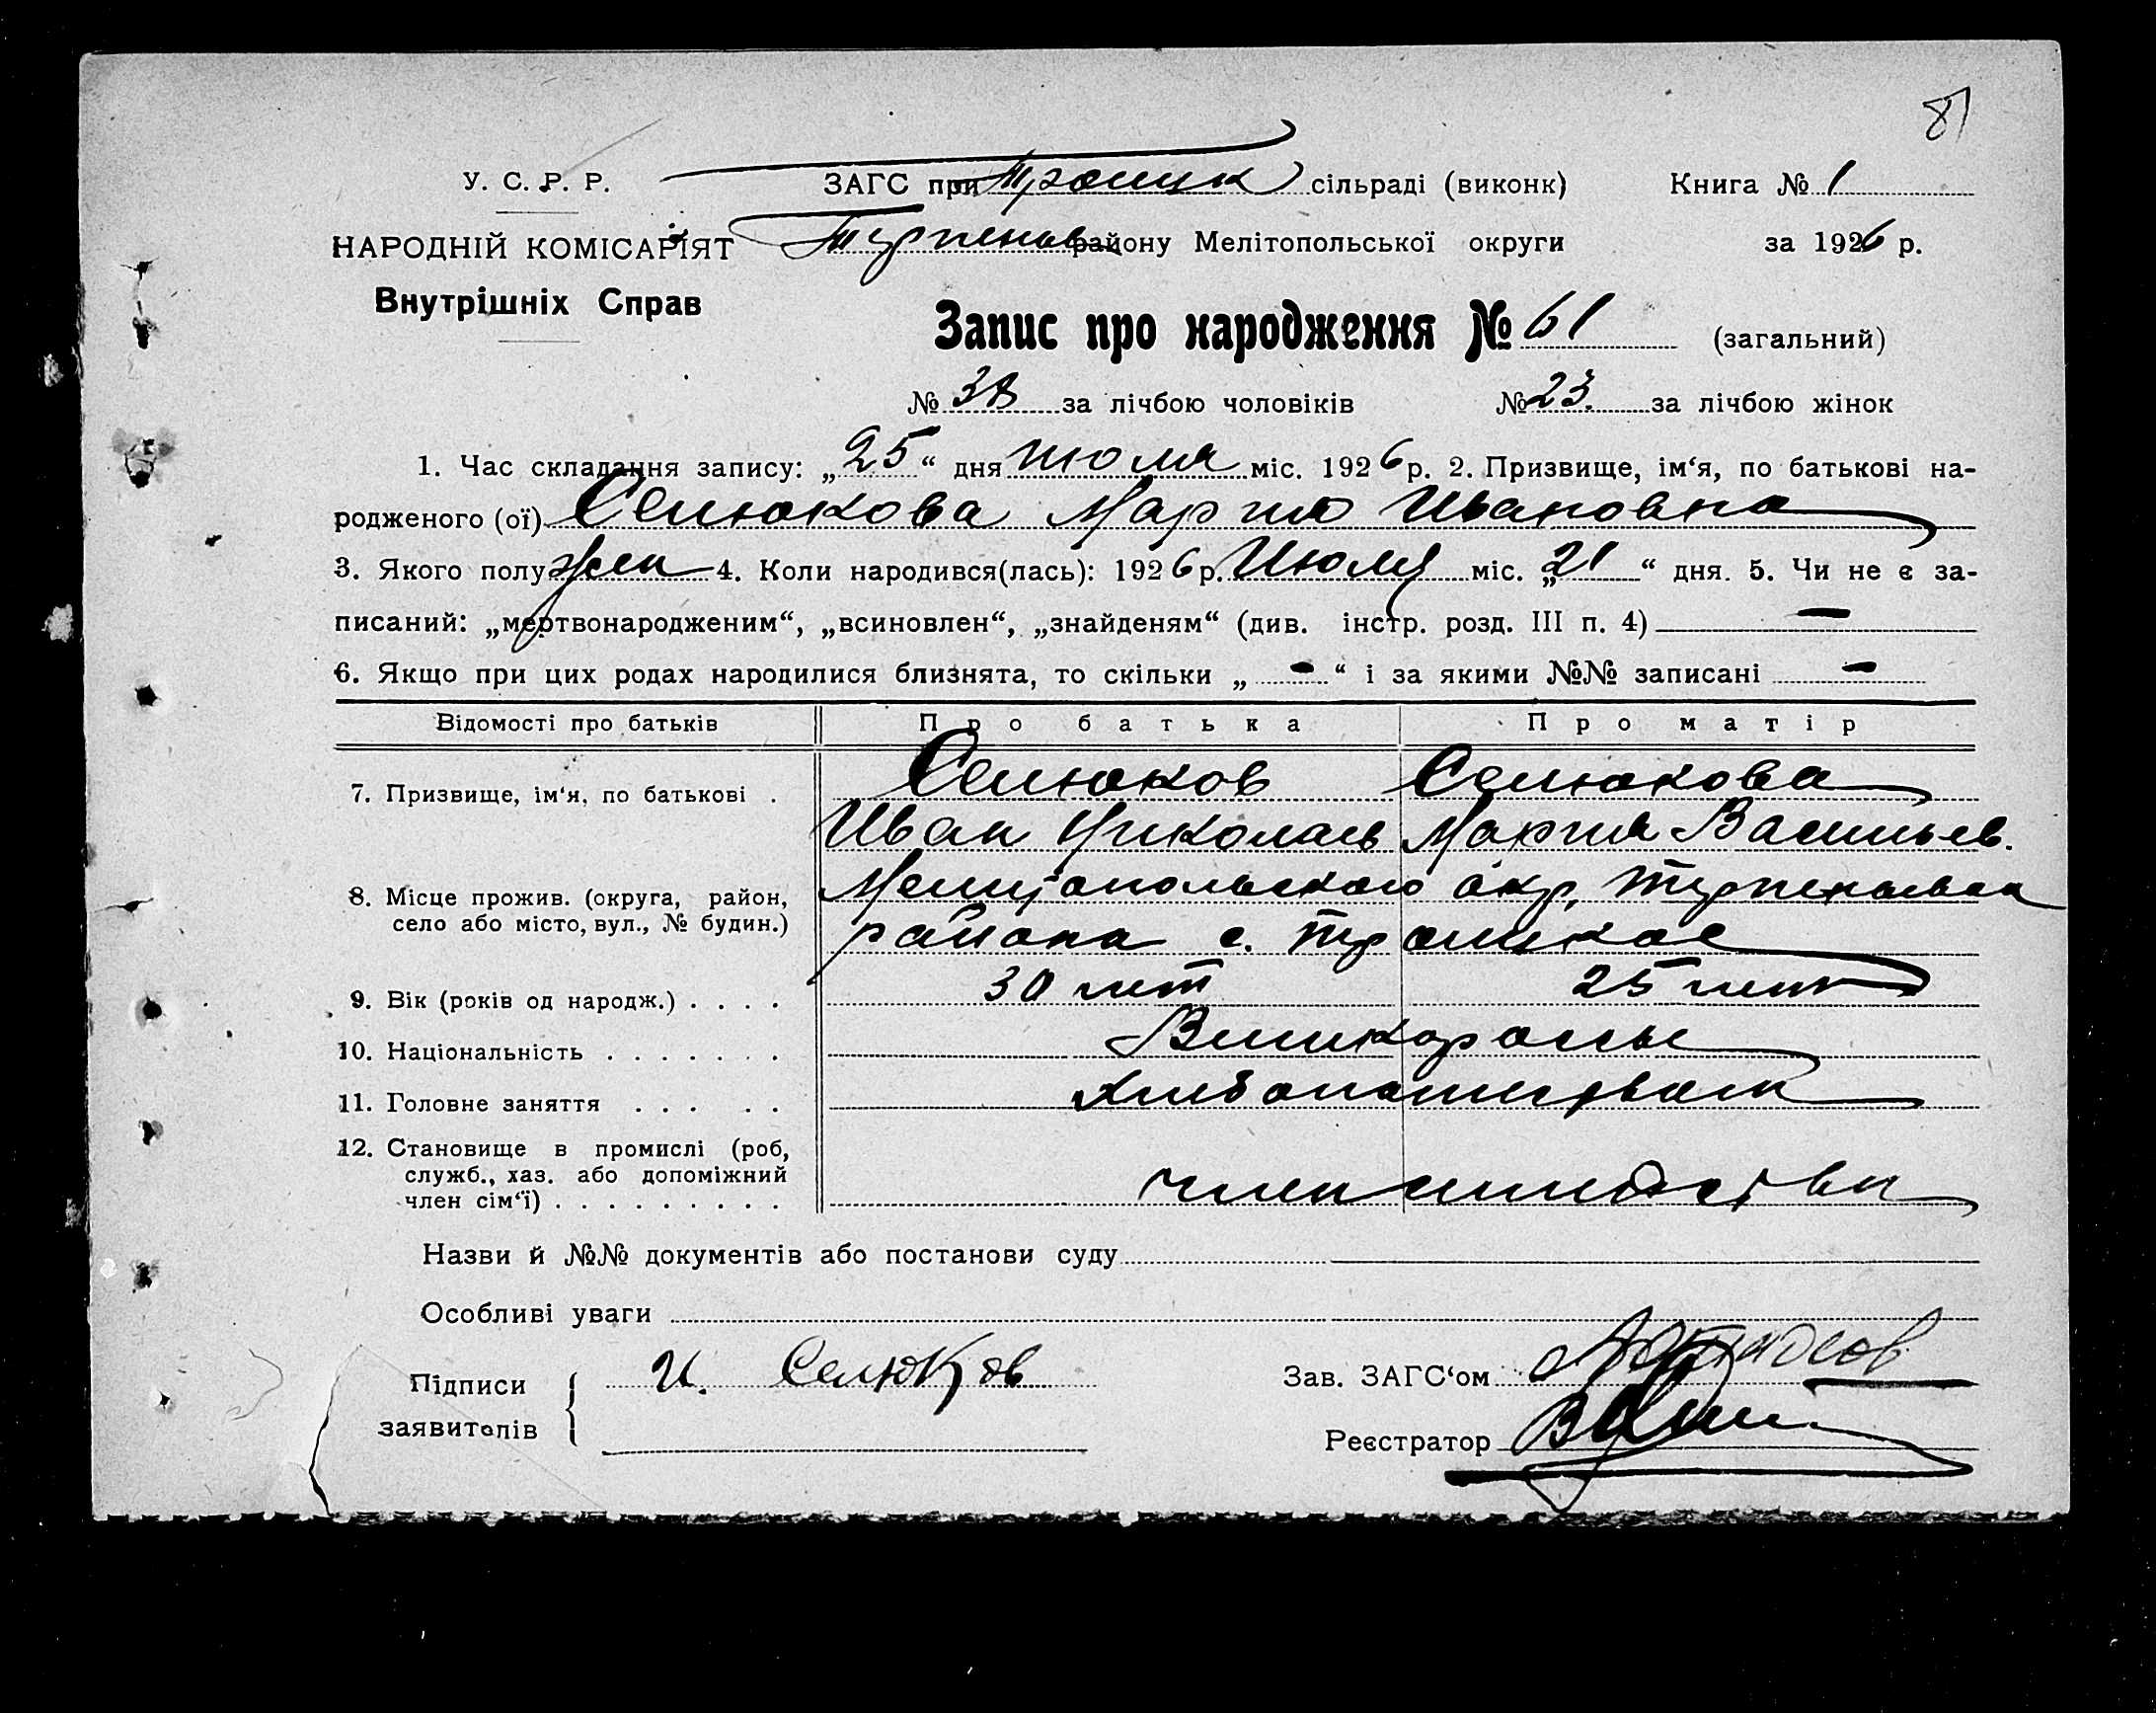 81
У. С. Р. Р. ЗАГС при Троицк сільраді (виконк) Книга № 1
НАРОДНІЙ КОМІСАРІЯТ Терпеньев району Мелітопольської округи за 1926 р.
Внутрішніх Справ
Запис про народження № 61 (загальний)
№ 38 за лічбою чоловіків № 23 за лічбою жінок
1. Час складання запису: „25“ дня июля міс. 1926 р. 2. Призвище, ім‘я, по батькові на-
родженого (ої) Селюкова Мария Ивановна
3. Якого полу жен 4. Коли народився(лась): 1926 р. Июля міс. „21“ дня. 5. Чи не є за-
писаний: „мертвонародженим“, „всиновлен“, „знайденям“ (див. інстр. розд. III п. 4) —
6. Якщо при цих родах народилися близнята, то скільки „ - “ і за якими №№ записані -
Відомості про батьків Про батька Про матір
7. Призвище, ім‘я, по батькові . Селюков Селюкова
Иван Николаев Мария Васильев.
8. Місце прожив. (округа, район, село або місто, вул., № будин.) Мелитопольского окр,
района с. Троицкое
9. Вік (років од народж.) . . . . 30 лет 25 лет
10. Національність . . . . . . . Великороссы
11. Головне заняття . . . . . Хлебопашеством
12. Становище в промислі (роб,
служб., хаз. або допоміжний
член сім‘ї) . . . . . . . . . член
Назви й №№ документів або постанови суду
Особливі уваги
Підписи И. Селюков Зав. ЗАГС‘ом
заявителів Реєстратор